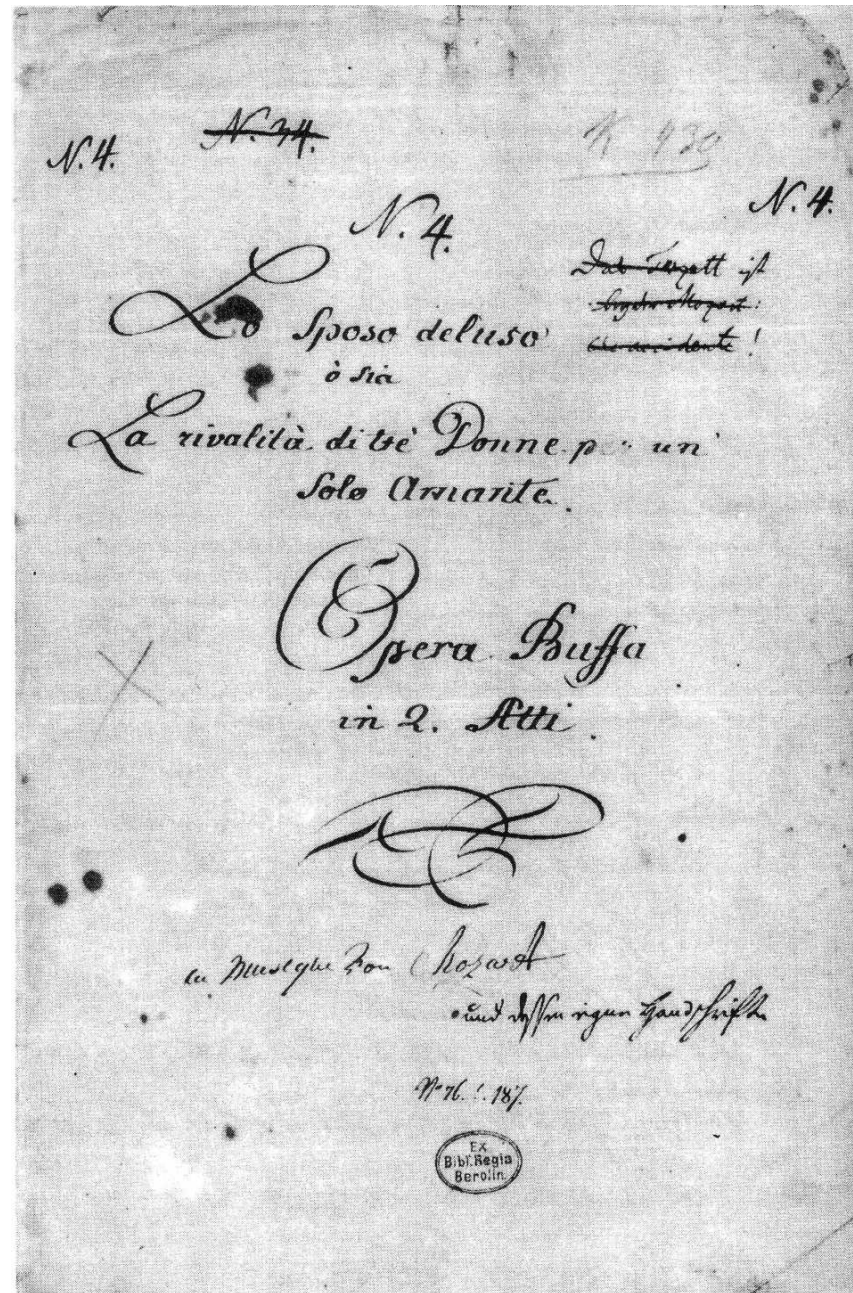 N. 4.
N. 24.
K 430
N. 4.
N. 4.
Das Terzett ist
che accidente!
Lo Sposo deluso
ò sia
La rivalità di trè Donne per un
Solo Amante.
Opera Buffa
in 2. Atti.
la Musique von Mozart
und dessen eigne Handschrift
Ex
Bibl. Regia
Berolin.